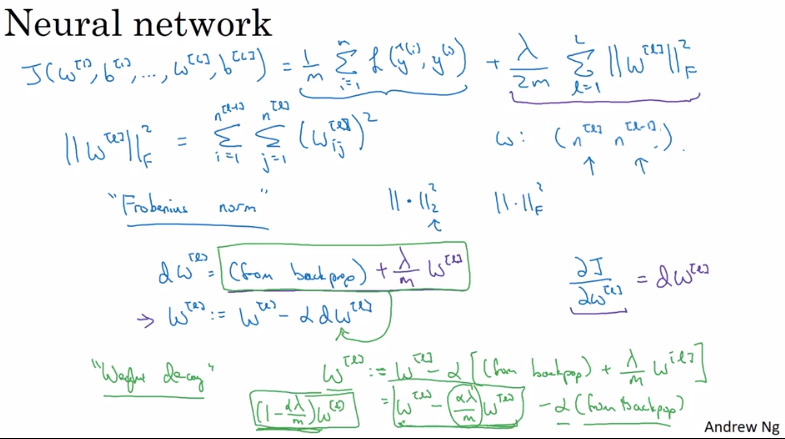 Neural network
J(w^[1], b^[1], ..., w^[L], b^[L]) = 1/m Σ_{i=1}^{m} L(ŷ^(i), y^(i)) + λ/2m Σ_{l=1}^{L} ||w^[l]||_F^2
||w^[l]||_F^2 = Σ_{i=1}^{n^[l-1]} Σ_{j=1}^{n^[l]} (w_ij^[l])^2 w: (n^[l] n^[l-1]).
"Frobenius norm" ||·||_2^2 ||·||_F^2
dw^[l] = (from backprop) + λ/m w^[l] ∂J/∂w^[l] = dw^[l]
→ w^[l] := w^[l] - α dw^[l]
"Weight decay" w^[l] := w^[l] - α [(from backprop) + λ/m w^[l]]
(1 - αλ/m) w^[l] = w^[l] - αλ/m w^[l] - α (from backprop)
Andrew Ng